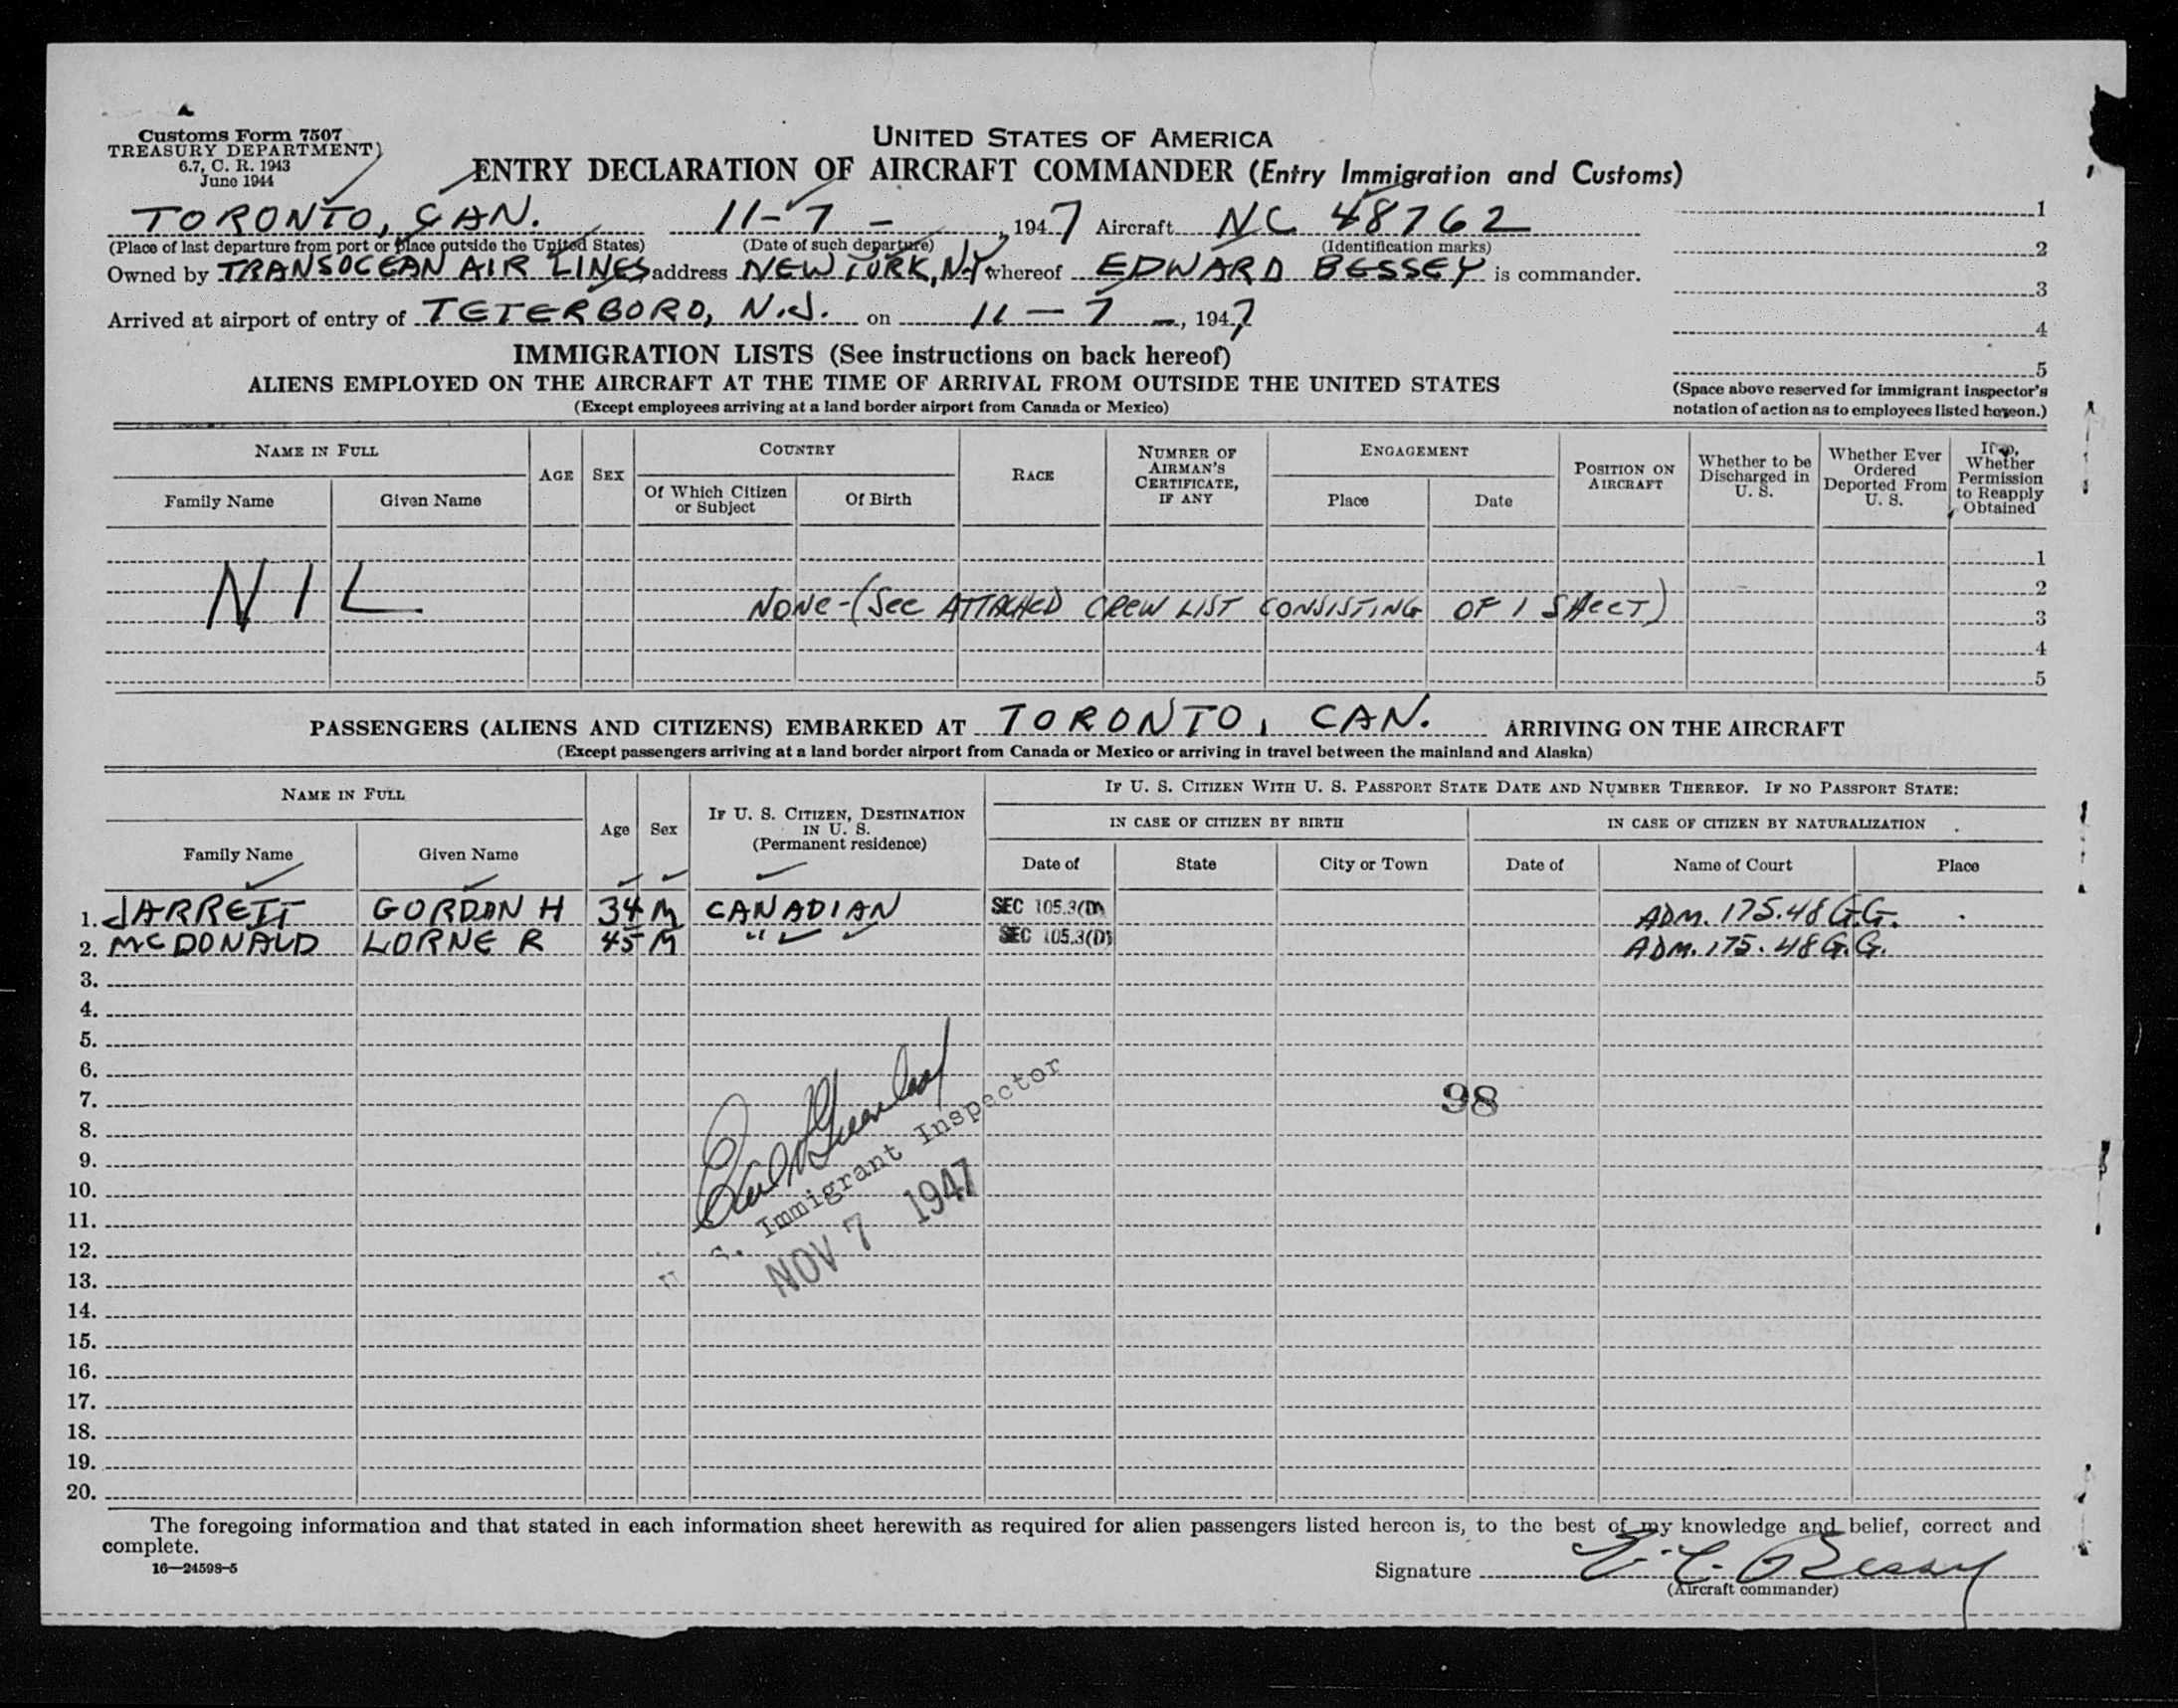 Customs Form 7507
TREASURY DEPARTMENT
6.7, C. R. 1943
June 1944
UNITED STATES OF AMERICA
ENTRY DECLARATION OF AIRCRAFT COMMANDER (Entry Immigration and Customs)
TORONTO, CAN. 11-7- , 1947 Aircraft NC 48762
(Place of last departure from port or place outside the United States) (Date of such departure) (Identification marks)
Owned by TRANSOCEAN AIR LINES address NEW YORK, N.Y. whereof EDWARD BESSEY is commander.
Arrived at airport of entry of TETERBORO, N.J. on 11-7-, 1947
1
2
3
4
5
(Space above reserved for immigrant inspector's
notation of action as to employees listed hereon.)
IMMIGRATION LISTS (See instructions on back hereof)
ALIENS EMPLOYED ON THE AIRCRAFT AT THE TIME OF ARRIVAL FROM OUTSIDE THE UNITED STATES
(Except employees arriving at a land border airport from Canada or Mexico)
NAME IN FULL
Family Name Given Name
AGE SEX
COUNTRY
Of Which Citizen or Subject Of Birth
RACE
NUMBER OF AIRMAN'S CERTIFICATE, IF ANY
ENGAGEMENT
Place Date
POSITION ON AIRCRAFT
Whether to be Discharged in U. S.
Whether Ever Ordered Deported From U. S.
If so, Whether Permission to Reapply Obtained
1
2
NIL NONE-(SEE ATTACHED CREW LIST CONSISTING OF 1 SHEET) 3
4
5
PASSENGERS (ALIENS AND CITIZENS) EMBARKED AT TORONTO, CAN. ARRIVING ON THE AIRCRAFT
(Except passengers arriving at a land border airport from Canada or Mexico or arriving in travel between the mainland and Alaska)
NAME IN FULL
Family Name Given Name
Age Sex
IF U. S. CITIZEN, DESTINATION IN U. S.
(Permanent residence)
IF U. S. CITIZEN WITH U. S. PASSPORT STATE DATE AND NUMBER THEREOF. IF NO PASSPORT STATE:
IN CASE OF CITIZEN BY BIRTH IN CASE OF CITIZEN BY NATURALIZATION
Date of State City or Town Date of Name of Court Place
1. JARRETT GORDON H 34 M CANADIAN SEC 105.3(D) ADM. 175.48 G.G.
2. MCDONALD LORNE R 45 M " SEC 105.3(D) ADM. 175.48 G.G.
3.
4.
5.
6.
7. 98
8.
9.
10.
11.
12.
13.
14.
15.
16.
17.
18.
19.
20.
U. S. Immigrant Inspector
NOV 7 1947
The foregoing information and that stated in each information sheet herewith as required for alien passengers listed hereon is, to the best of my knowledge and belief, correct and
complete.
16—24598-5
Signature E. C. Bessey
(Aircraft commander)